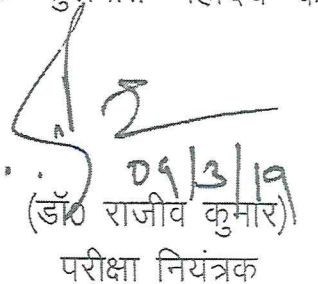 09/3/19
(डॉ0 राजीव कुमार)
परीक्षा नियंत्रक